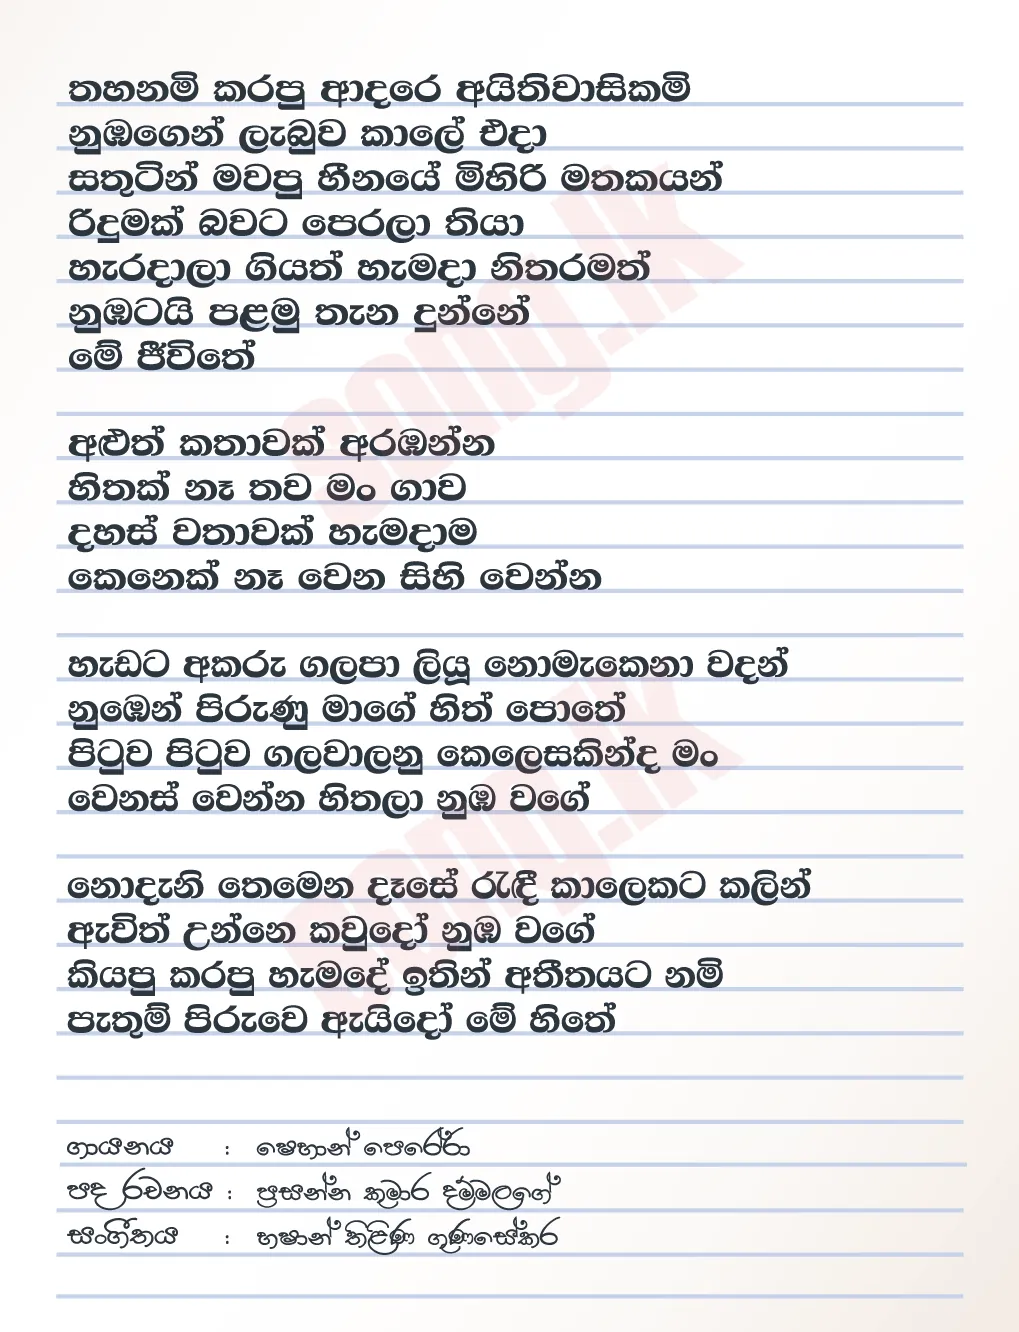 තහනම් කරපු ආදරෙ අයිතිවාසිකම්
නුඹගෙන් ලැබුව කාලේ එදා
සතුටින් මවපු හීනයේ මිහිරි මතකයන්
රිදුමක් බවට පෙරලා තියා
හැරදාලා ගියත් හැමදා නිතරමත්
නුඹටයි පළමු තැන දුන්නේ
මේ ජීවිතේ
අළුත් කතාවක් අරඹන්න
හිතක් නෑ තව මං ගාව
දහස් වතාවක් හැමදාම
කෙනෙක් නෑ වෙන සිහි වෙන්න
හැඩට අකරු ගලපා ලියූ නොමැකෙනා වදන්
නුඹෙන් පිරුණු මාගේ හිත් පොතේ
පිටුව පිටුව ගලවාලනු කෙලෙසකින්ද මං
වෙනස් වෙන්න හිතලා නුඹ වගේ
නොදැනි තෙමෙන දෑසේ රැඳී කාලෙකට කලින්
ඇවිත් උන්නෙ කවුදෝ නුඹ වගේ
කියපු කරපු හැමදේ ඉතින් අතීතයට නමි
පැතුම් පිරුවෙ ඇයිදෝ මේ හිතේ
ගායනය : ෂෙහාන් පෙරේරා
පද රචනය : ප්‍රසන්න කුමාර දම්මලගේ
සංගීතය : හෂාන් තිළිණ ගුණසේකර
song.lk
song.lk